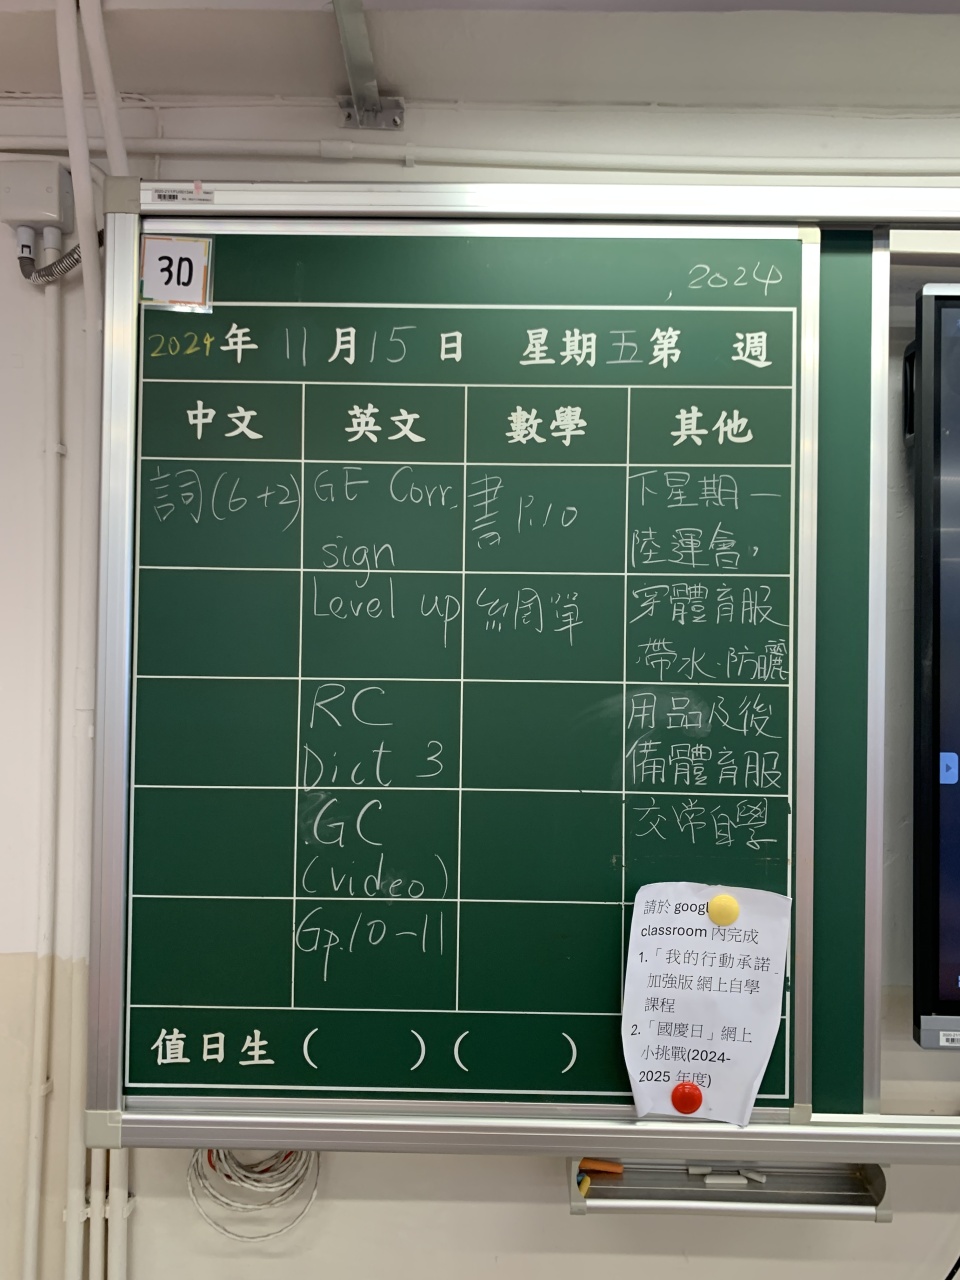 3D
, 2024
2024年 11月15日 星期五第 週
中文 英文 數學 其他
詞(6+2)
GE Corr.
sign
Level up
RC
Dict 3
GC
(video)
Gp.10-11
書 P.10
網單
下星期一
陸運會，
穿體育服
帶水、防曬
用品及後
備體育服
交常自學
值日生 ( ) ( )
請於 googl
classroom 內完成
1.「我的行動承諾」
加強版 網上自學
課程
2.「國慶日」網上
小挑戰(2024-
2025 年度)